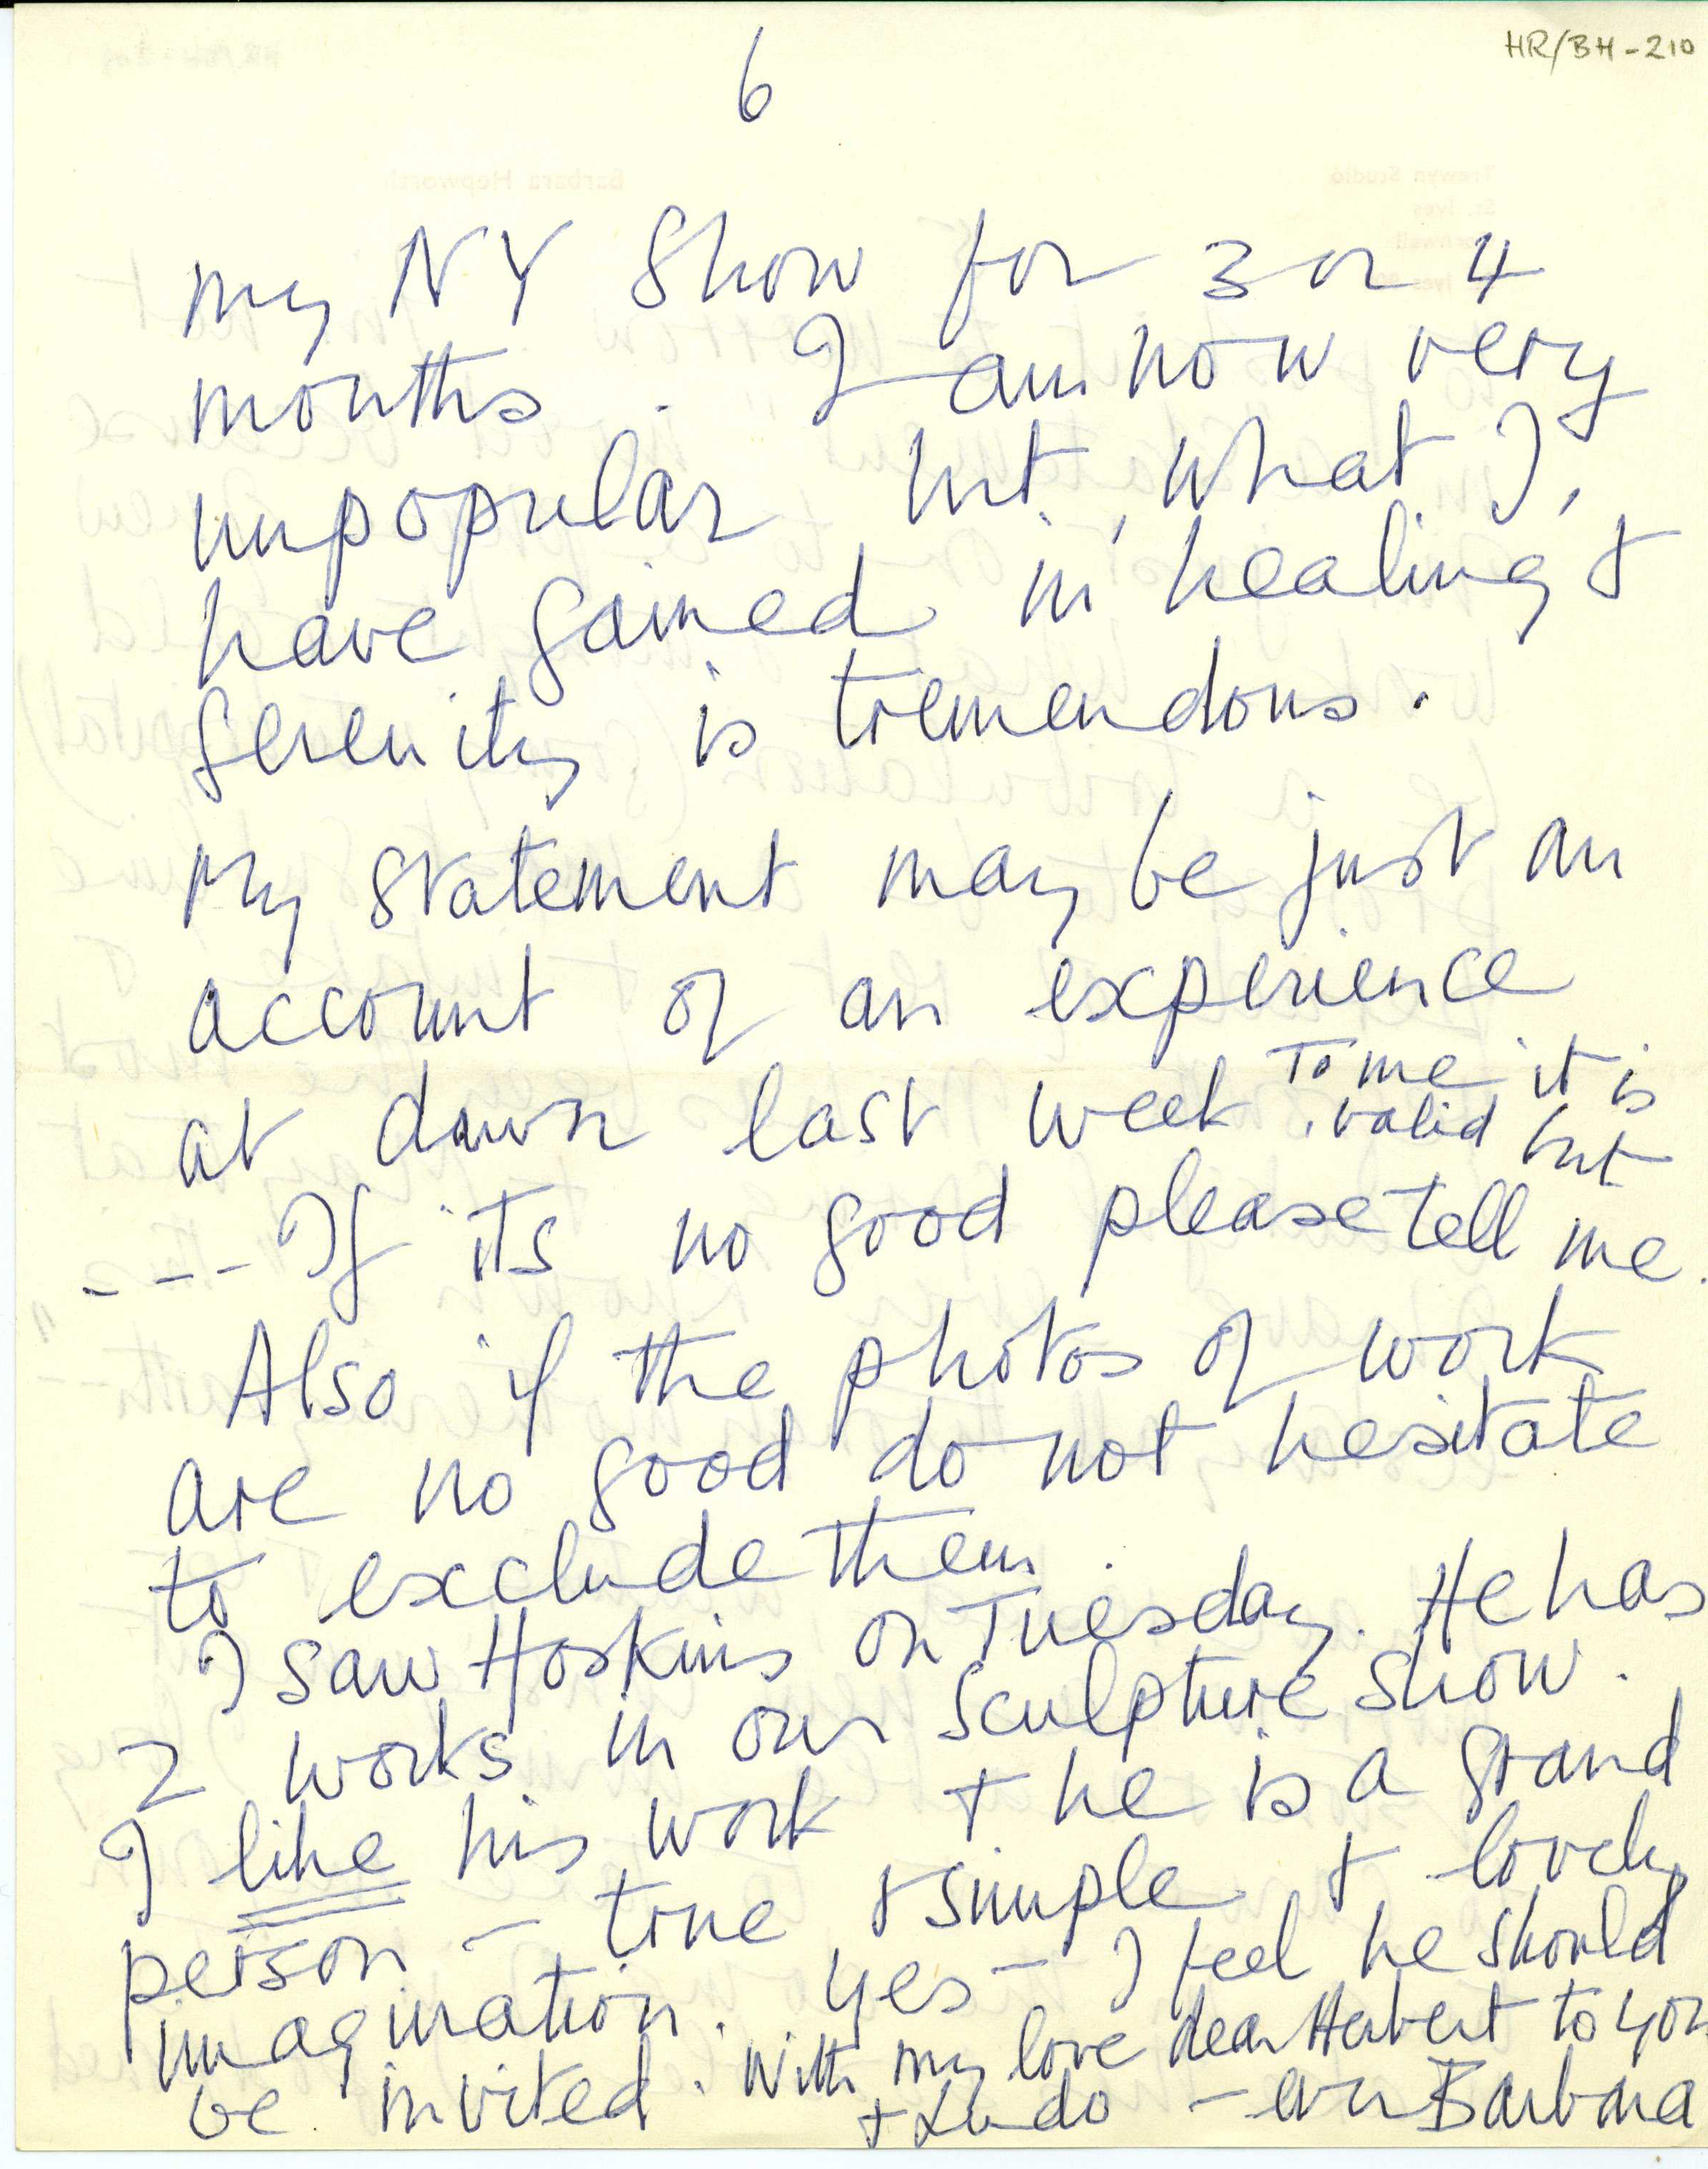 HR/BH-210
6
my NY Show for 3 or 4
months. I am now very
unpopular but, what I,
have gained in healing &
serenity is tremendous.
My statement may be just an
account of an experience
at dawn last week. To me it is
valid but
---- If its no good please tell me.
Also if the photos of work
are no good do not hesitate
to exclude them.
I saw Hoskins on Tuesday. He has
2 works in our sculpture show.
I like his work & he is a grand
person – true & simple & lovely
imagination. Yes – I feel he should
be invited. With my love dear Herbert to you
& Ludo – ever Barbara
Barbara Hepworth
Trewyn Studio
St. Ives
Cornwall